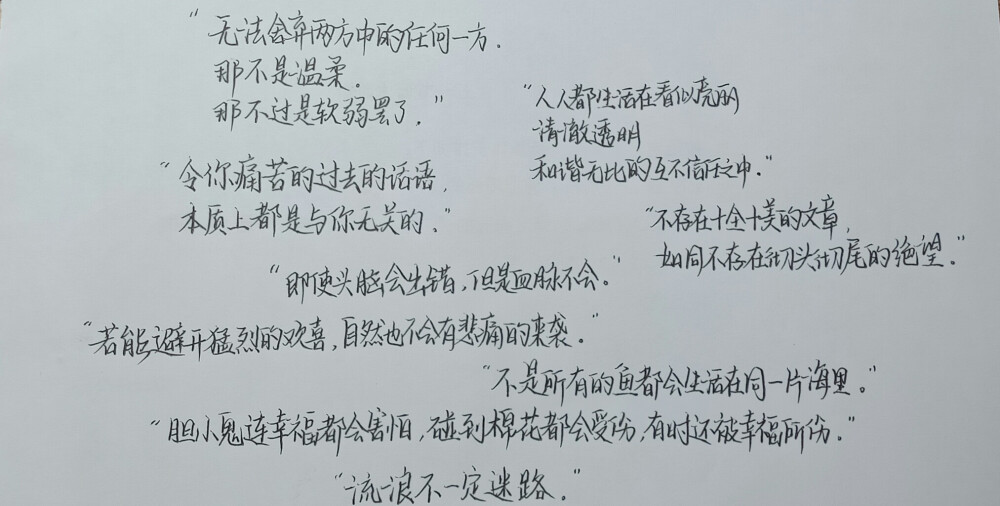 “无法舍弃两方中的任何一方.
那不是温柔.
那不过是软弱罢了.”
“人人都生活在看似亮丽
清澈透明
和谐无比的互不信任之中.”
“令你痛苦的过去的话语,
本质上都是与你无关的.”
“不存在十全十美的文章,
如同不存在彻头彻尾的绝望.”
“即使头脑会出错,但是血脉不会。”
“若能避开猛烈的欢喜,自然也不会有悲痛的来袭。”
“不是所有的鱼都会生活在同一片海里。”
“胆小鬼连幸福都会害怕,碰到棉花都会受伤,有时还被幸福所伤.”
“流浪不一定迷路.”